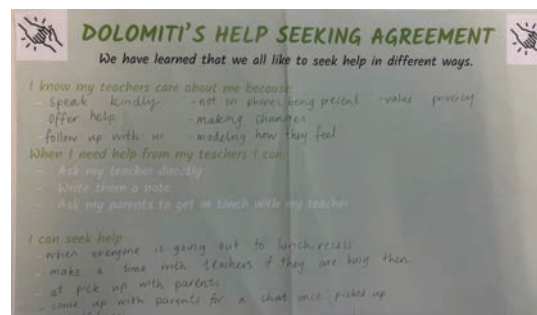 DOLOMITI'S HELP SEEKING AGREEMENT
We have learned that we all like to seek help in different ways.
I know my teachers care about me because:
- Speak kindly - not on phones, being present - value privacy
offer help - making changes
- follow up with us - modeling how they feel
When I need help from my teachers I can:
- Ask my teacher directly
- Write them a note
- Ask my parents to get in touch with my teacher
I can seek help
- when everyone is going out to lunch/recess
- make a time with teachers if they are busy then
- at pick up with parents
- come up with parents for a chat once picked up